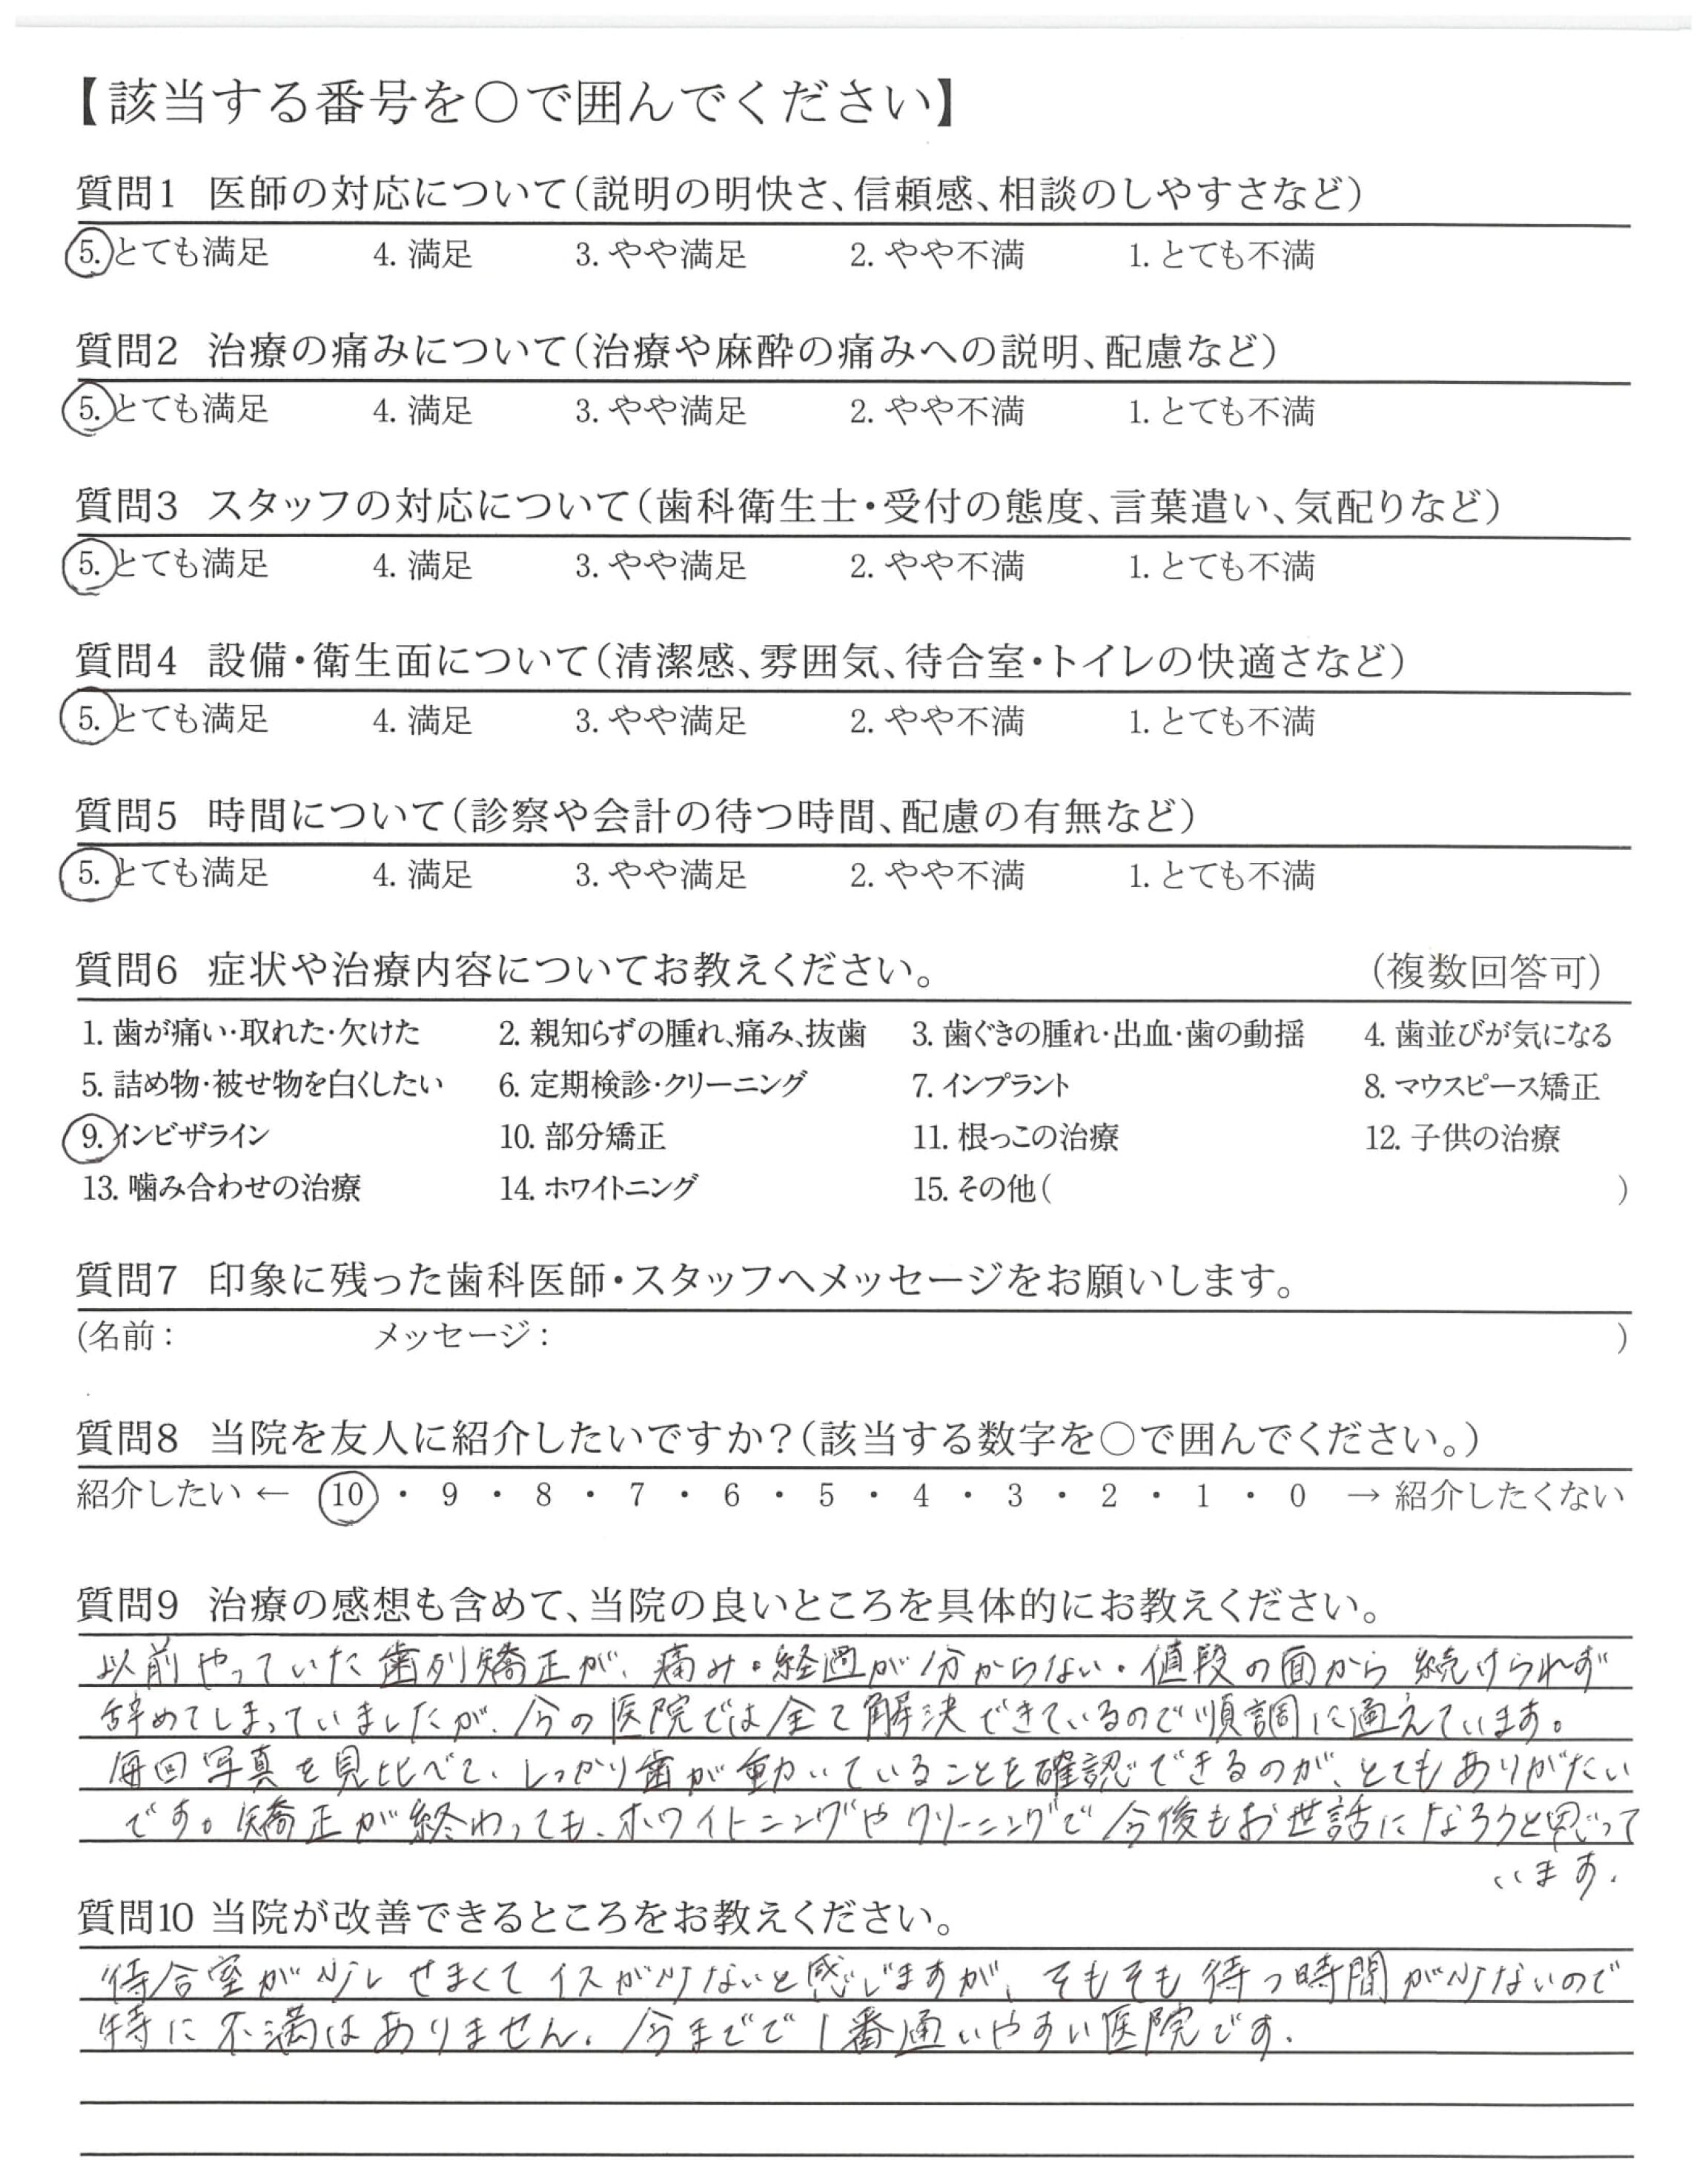 【該当する番号を○で囲んでください】
質問1 医師の対応について(説明の明快さ、信頼感、相談のしやすさなど)
5. とても満足 4. 満足 3. やや満足 2. やや不満 1. とても不満
質問2 治療の痛みについて(治療や麻酔の痛みへの説明、配慮など)
5. とても満足 4. 満足 3. やや満足 2. やや不満 1. とても不満
質問3 スタッフの対応について(歯科衛生士・受付の態度、言葉遣い、気配りなど)
5. とても満足 4. 満足 3. やや満足 2. やや不満 1. とても不満
質問4 設備・衛生面について(清潔感、雰囲気、待合室・トイレの快適さなど)
5. とても満足 4. 満足 3. やや満足 2. やや不満 1. とても不満
質問5 時間について(診察や会計の待つ時間、配慮の有無など)
5. とても満足 4. 満足 3. やや満足 2. やや不満 1. とても不満
質問6 症状や治療内容についてお教えください。 (複数回答可)
1. 歯が痛い・取れた・欠けた 2. 親知らずの腫れ、痛み、抜歯 3. 歯ぐきの腫れ・出血・歯の動揺 4. 歯並びが気になる
5. 詰め物・被せ物を白くしたい 6. 定期検診・クリーニング 7. インプラント 8. マウスピース矯正
9. インビザライン 10. 部分矯正 11. 根っこの治療 12. 子供の治療
13. 噛み合わせの治療 14. ホワイトニング 15. その他( )
質問7 印象に残った歯科医師・スタッフへメッセージをお願いします。
(名前: メッセージ: )
質問8 当院を友人に紹介したいですか?(該当する数字を○で囲んでください。)
紹介したい ← 10 ・ 9 ・ 8 ・ 7 ・ 6 ・ 5 ・ 4 ・ 3 ・ 2 ・ 1 ・ 0 → 紹介したくない
質問9 治療の感想も含めて、当院の良いところを具体的にお教えください。
以前やっていた歯列矯正が、痛み・経過が分からない・値段の面から続けられず
辞めてしまっていましたが、今の医院では全て解決できているので順調に通えています。
毎回写真を見比べて、しっかり歯が動いていることを確認できるのが、とてもありがたい
です。矯正が終わっても、ホワイトニングやクリーニングで今後もお世話になろうと思って
います。
質問10 当院が改善できるところをお教えください。
待合室が少しせまくてイスが少ないと感じますが、そもそも待つ時間が少ないので
特に不満はありません。今までで1番通いやすい医院です。